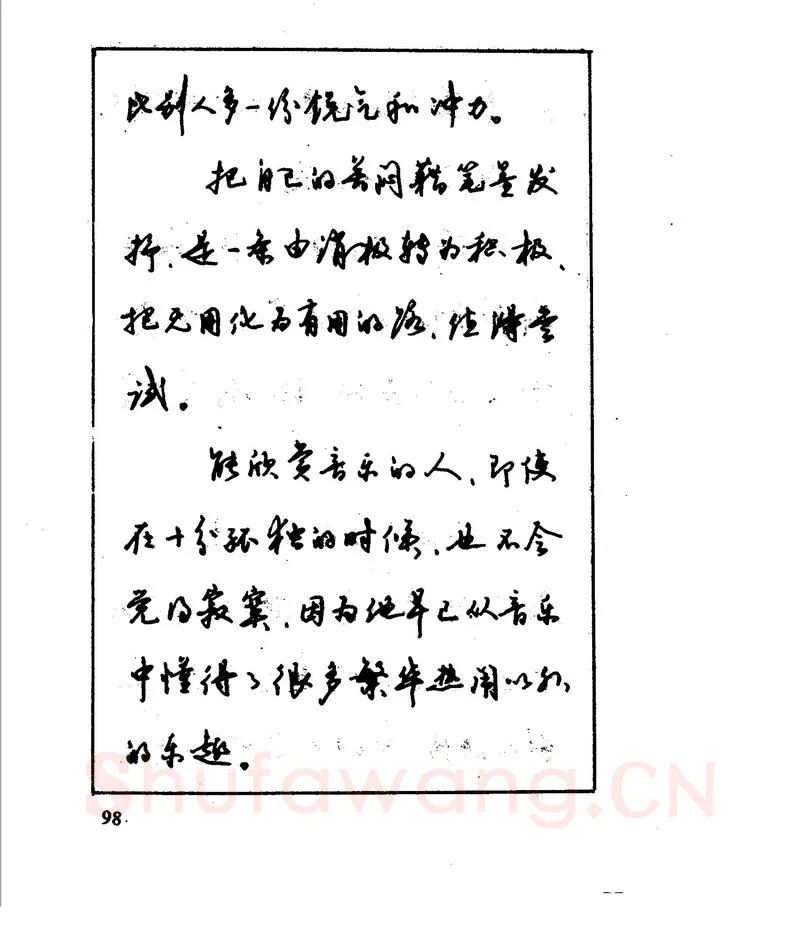 比别人多一份锐气和冲力。
把自己的苦闷藉笔墨发
抒，是一条由消极转为积极、
把无用化为有用的路，值得尝
试。
能欣赏音乐的人，即使
在十分孤独的时候，也不会
觉得寂寞，因为他早已从音乐
中懂得了很多繁华热闹以外
的乐趣。
Shufawang.CN
98